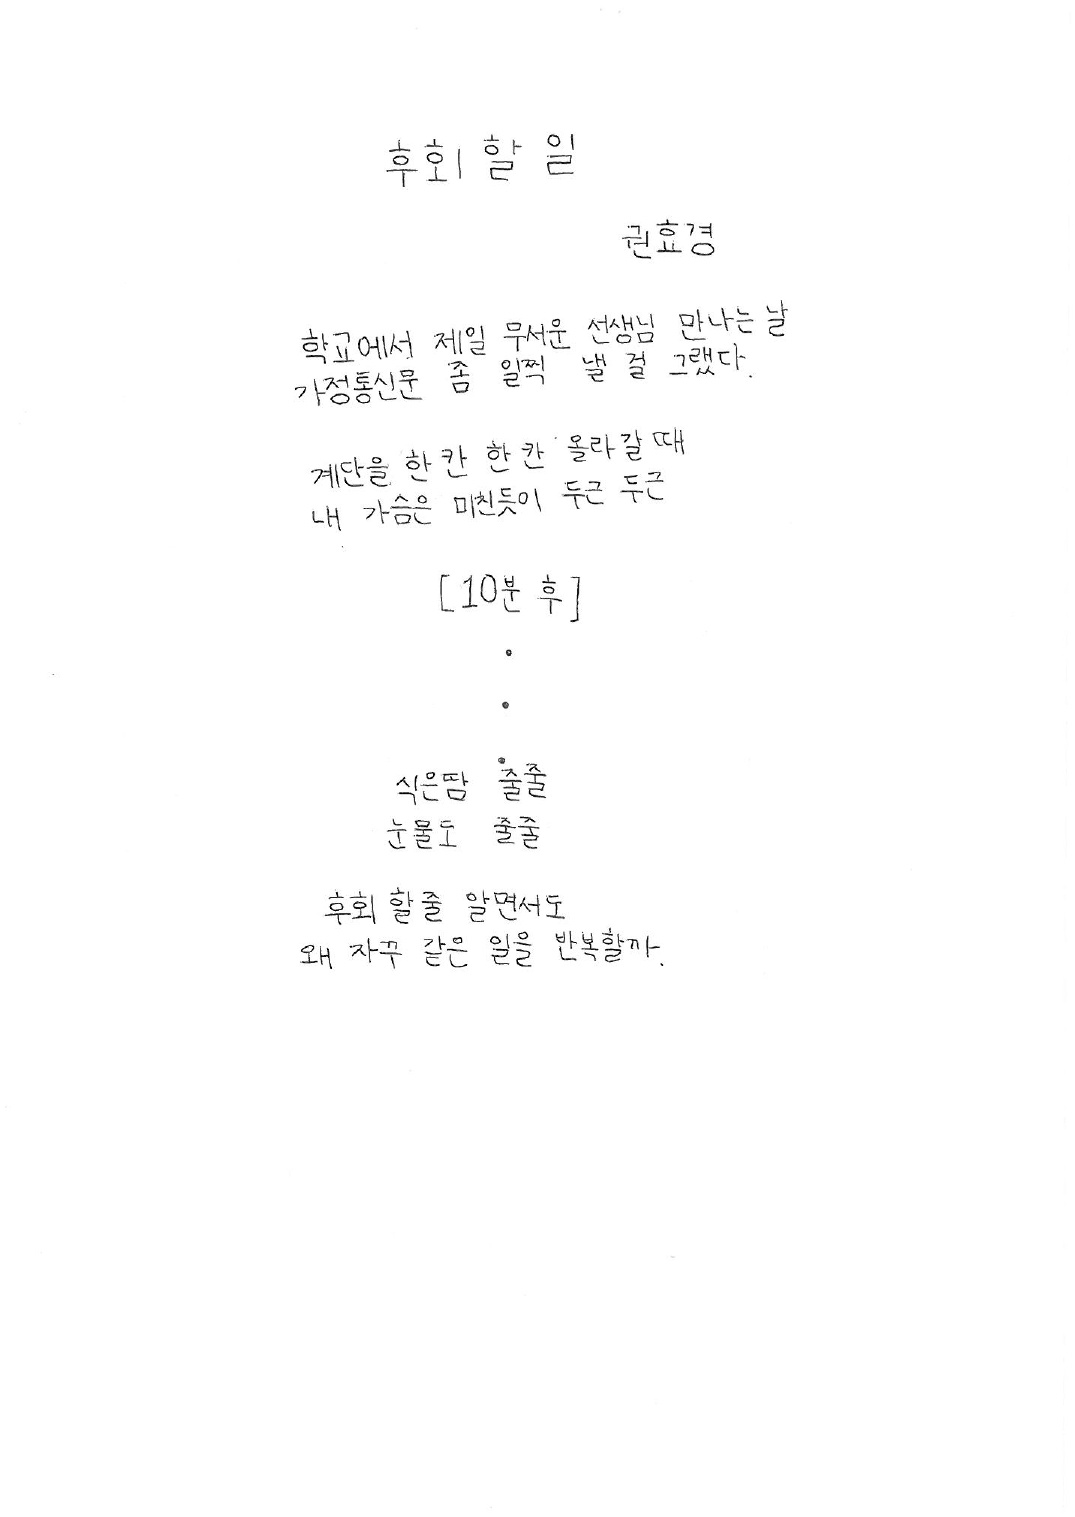 후회 할 일
권효경
학교에서 제일 무서운 선생님 만나는 날
가정통신문 좀 일찍 낼 걸 그랬다.
계단을 한 칸 한 칸 올라갈 때
내 가슴은 미친듯이 두근 두근
[10분 후]
.
.
.
식은땀 줄줄
눈물도 줄줄
후회 할줄 알면서도
왜 자꾸 같은 일을 반복할까.